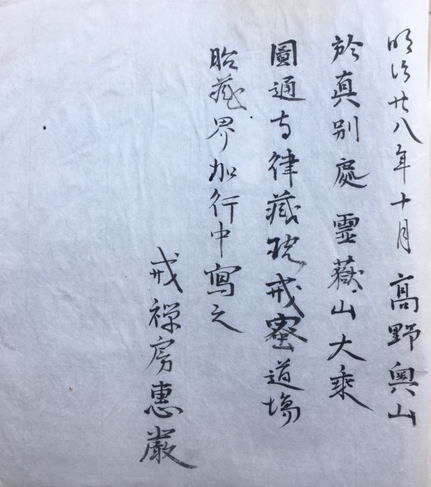 明治廿八年十月高野奥山
於真别處霊嶽山大乘
圖通寺律藏院戒密道場
胎藏界加行中寫之
戒禅房惠巌